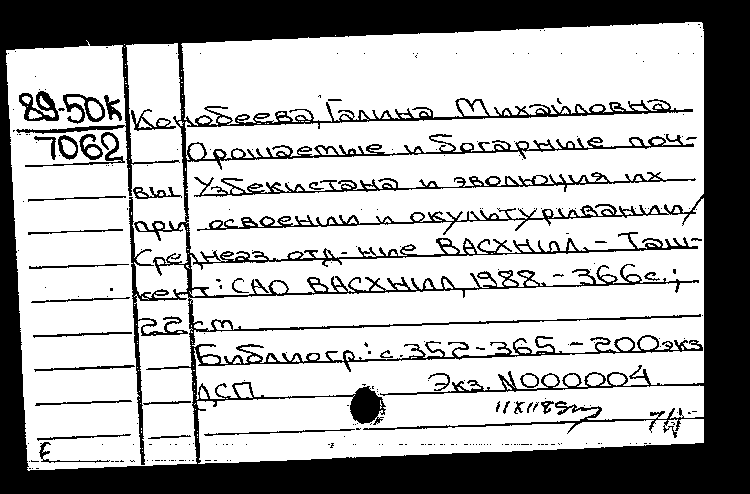 89-50К
7062
Конобеева, Галина Михайловна
Орошаемые и богарные поч-
вы Узбекистана и эволюция их
при освоении и окультуривании/
Среднеаз. отд-ние ВАСХНИЛ. - Таш-
кент: САО ВАСХНИЛ, 1988. - 366с.;
22см.
Библиогр.: с. 352-365. - 200экз
ДСП. Экз. N000004.
E